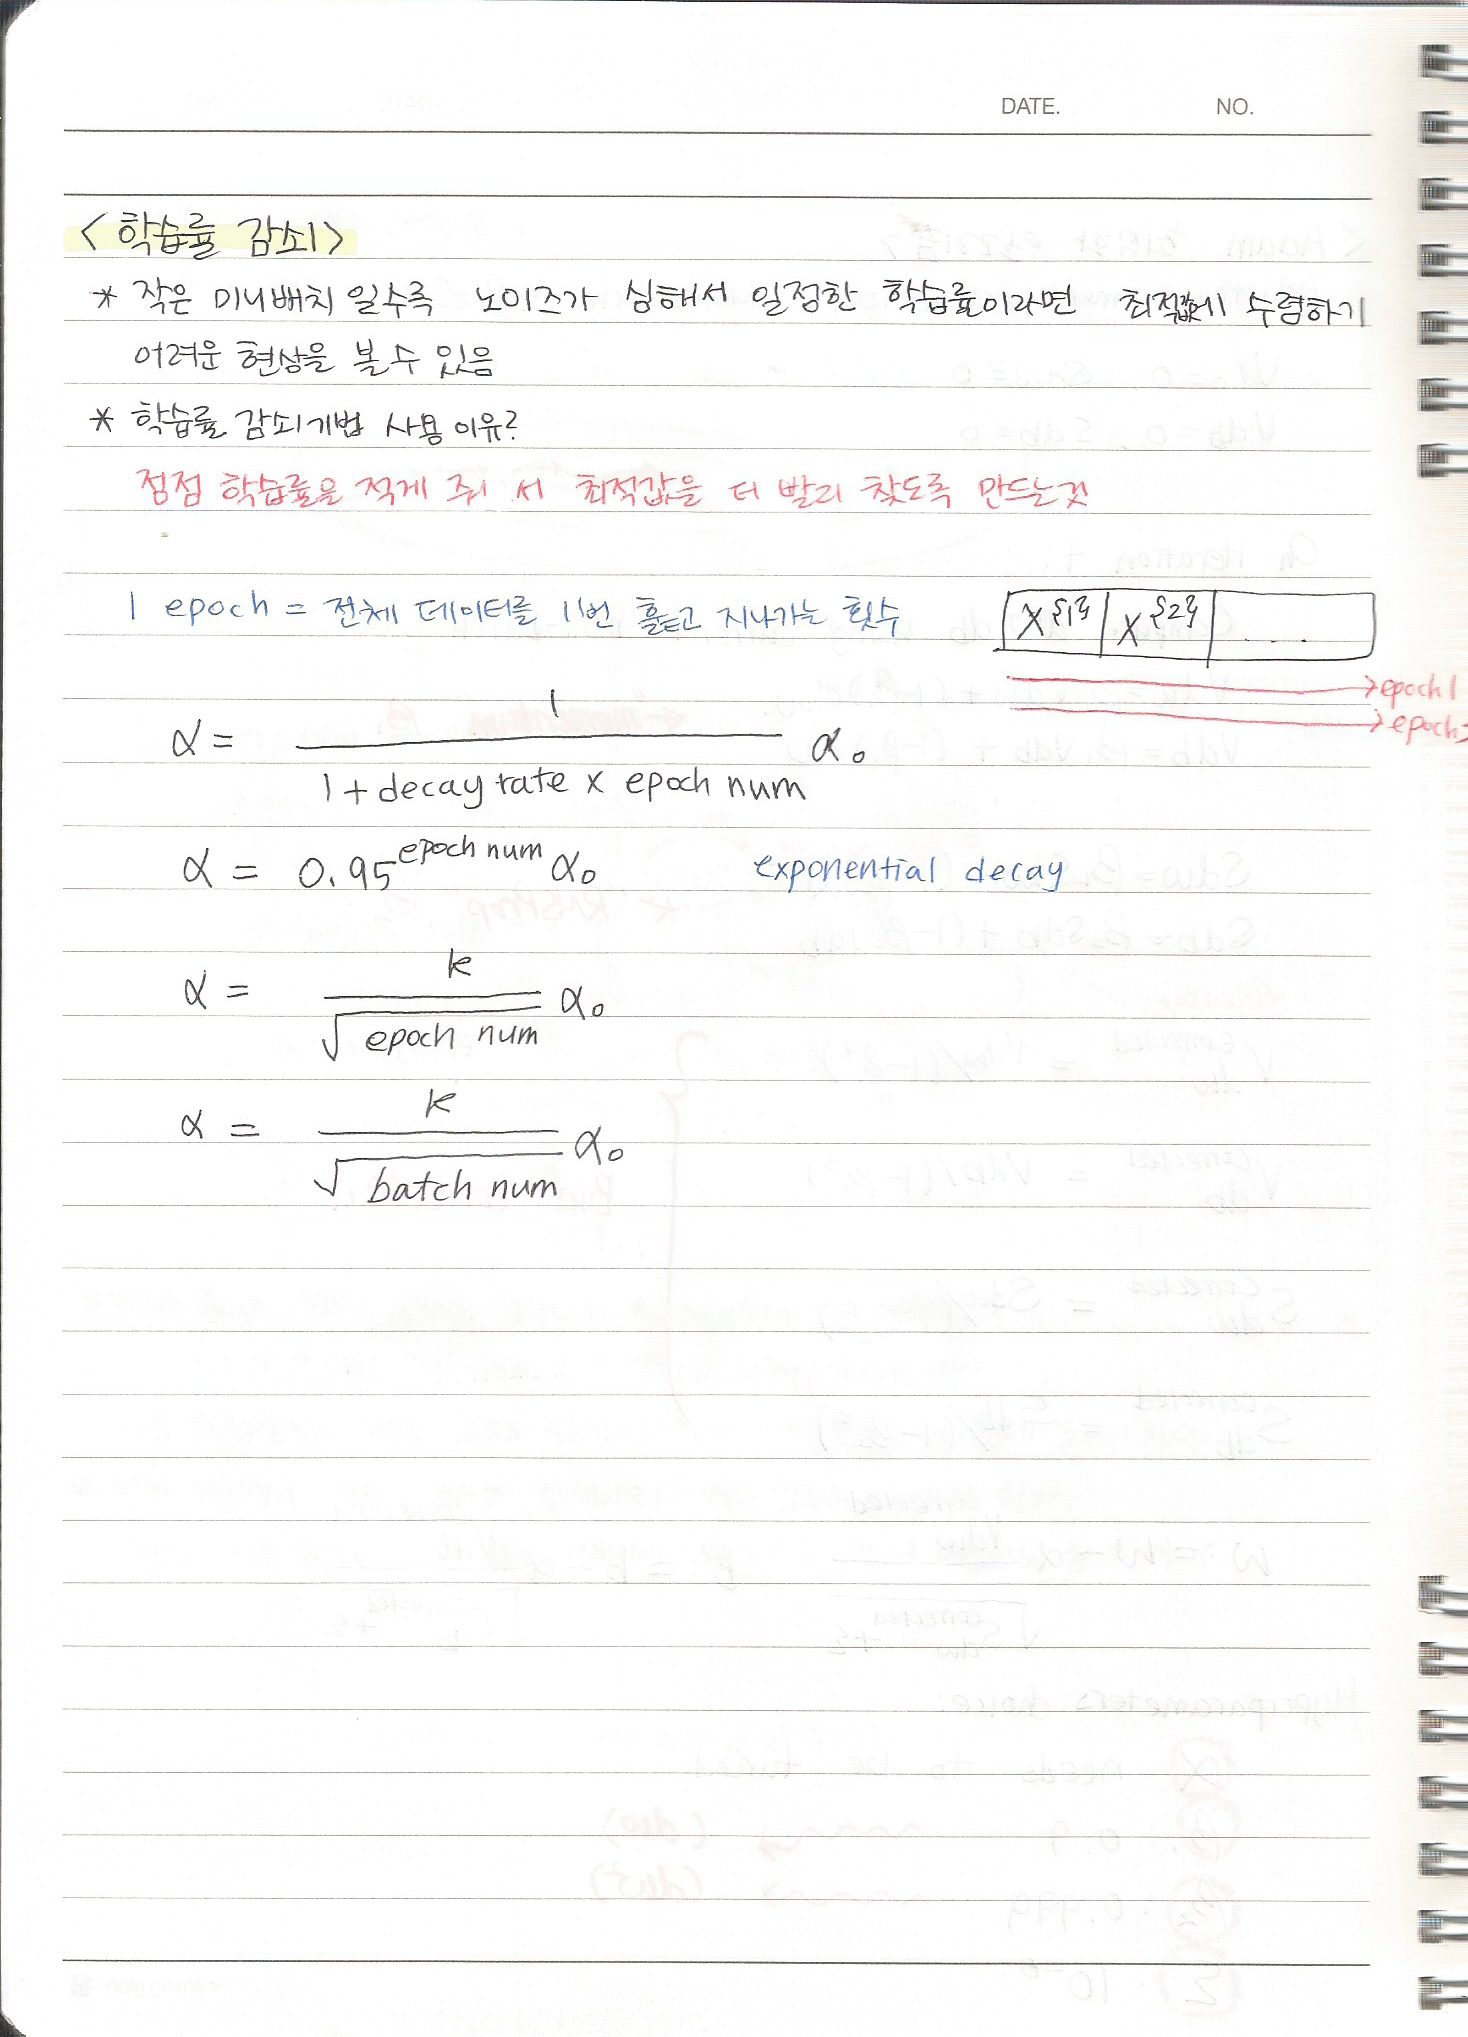 DATE. NO.
<학습률 감쇠>
* 작은 미니배치 일수록 노이즈가 심해서 일정한 학습률이라면 최적값에 수렴하기
어려운 현상을 볼 수 있음
* 학습률 감쇠기법 사용 이유?
점점 학습률을 적게 줘서 최적값을 더 빨리 찾도록 만드는것
1 epoch = 전체 데이터를 1번 훑고 지나가는 횟수
X{1} X{2} ...
→epoch1
→epoch2
α = 1 / (1 + decay rate x epoch num) α₀
α = 0.95^epoch num α₀ exponential decay
α = k / √epoch num α₀
α = k / √batch num α₀